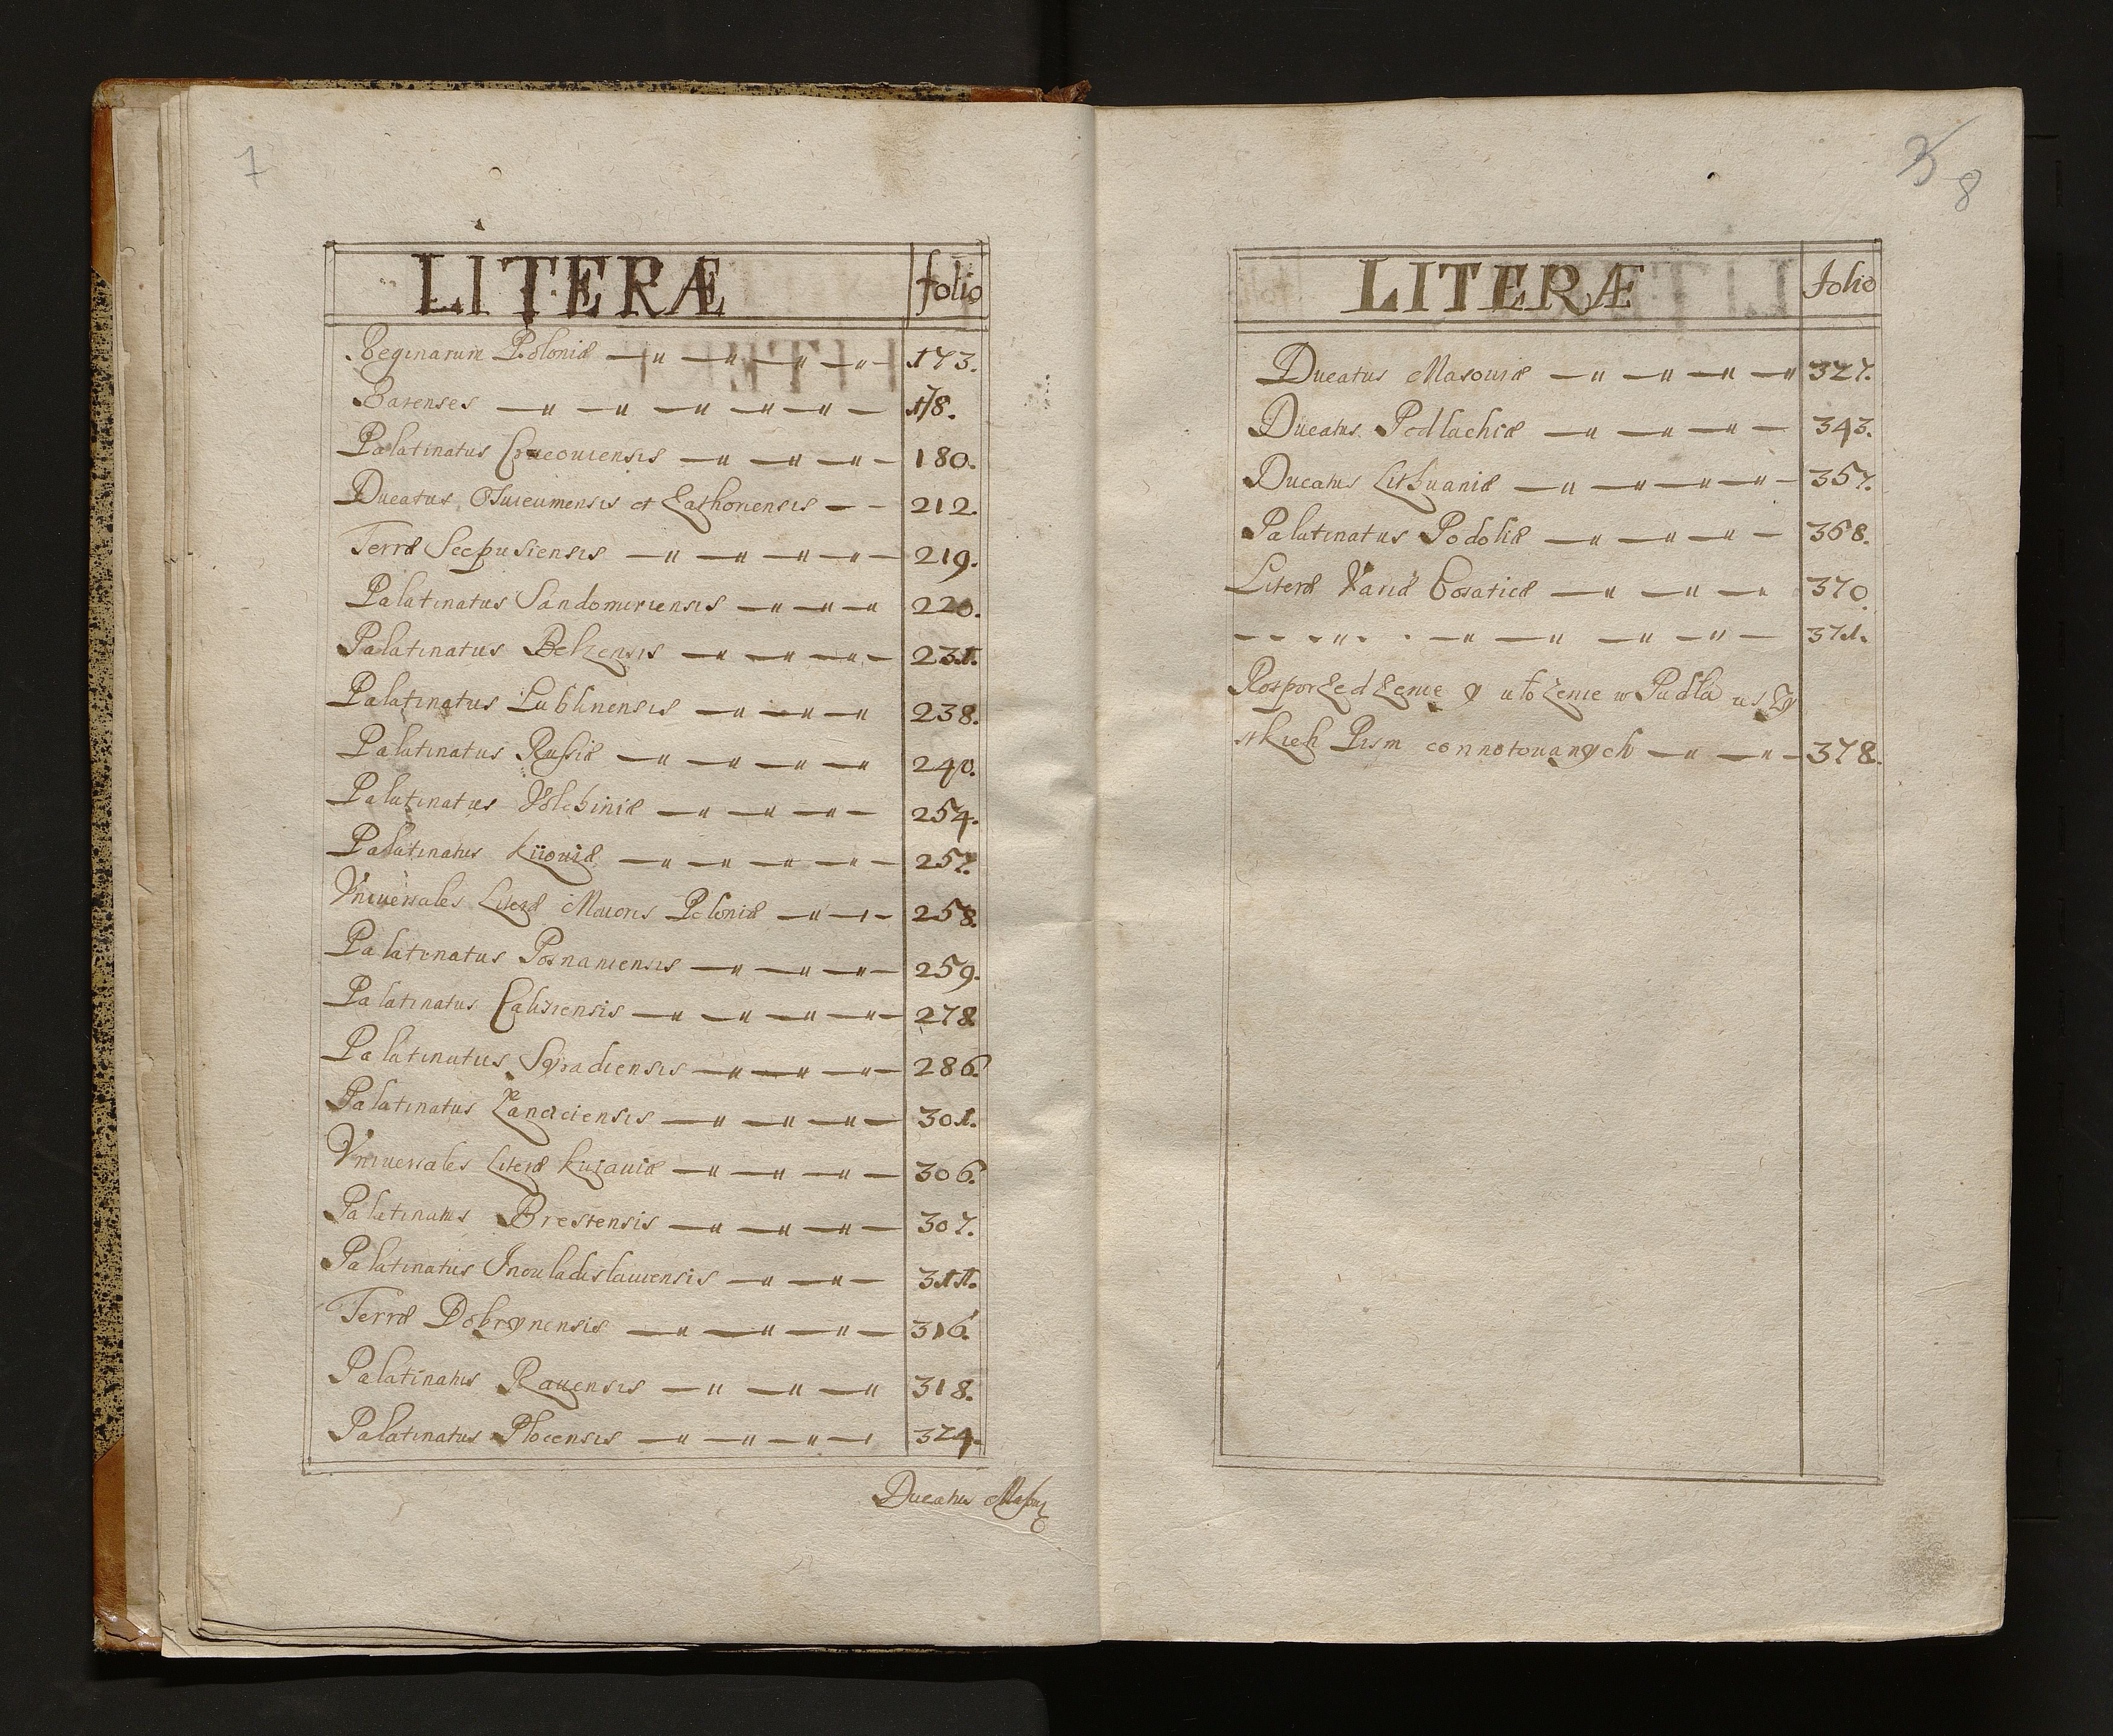 7
LITERÆ folio
Reginarum Poloniæ 173.
Barenses 178.
Palatinatus Cracouiensis 180.
Ducatus Osuiecimensis et Zathoriensis 212.
Terræ Scepusiensis 219.
Palatinatus Sandomiriensis 220.
Palatinatus Belzensis 231.
Palatinatus Lublinensis 238.
Palatinatus Russiæ 240.
Palatinatus Volhiniæ 254.
Palatinatus Kiiouiæ 257.
Vniuersales Literæ Maioris Poloniæ 258.
Palatinatus Posnaniensis 259.
Palatinatus Calisiensis 278.
Palatinatus Syradiensis 286.
Palatinatus Lanciciensis 301.
Vniuersales Literæ Kuiauiæ 306.
Palatinatus Brestensis 307.
Palatinatus Inouladislauiensis 311.
Terræ Dobrynensis 316.
Palatinatus Rauensis 318.
Palatinatus Plocensis 324.
Ducatus
3 8
LITERÆ folio
Ducatus Masouiæ 327.
Ducatus Podlachiæ 343.
Ducatus Lithuaniæ 357.
Palatinatus Podoliæ 368.
Literæ Variæ Cosaticæ 370.
371.
Rosporządzenie y ułożenie w Pudła wszy
stkich Pism connotowanych 378.